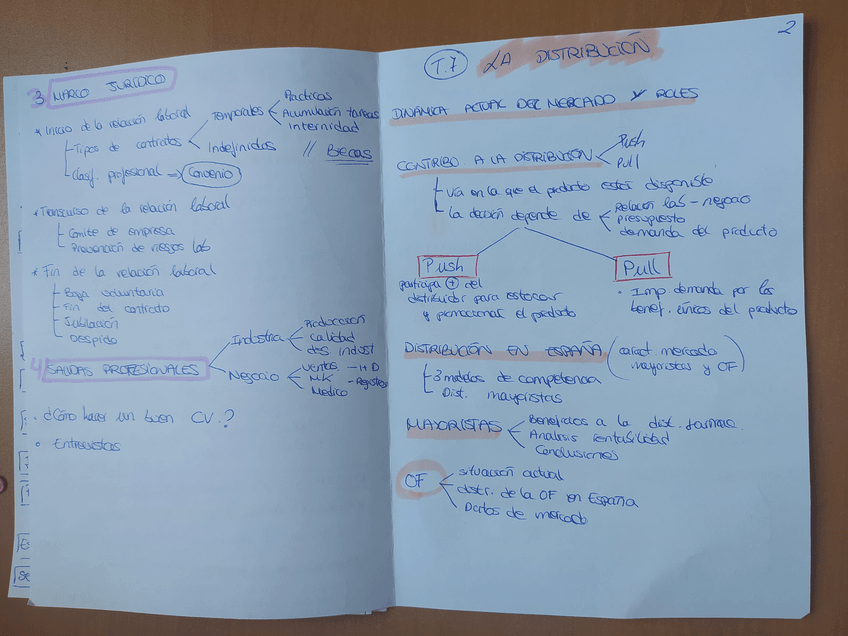 3. MARCO JURÍDICO
* Inicio de la relación laboral
Tipos de contratos
Temporales
Prácticas
Acumulación tareas
Internidad
Indefinidos
// Becas
Clasif. profesional => Convenio
* Transcurso de la relación laboral
Comité de empresa
Prevención de riesgos lab
* Fin de la relación laboral
Baja voluntaria
Fin del contrato
Jubilación
Despido
4. SALIDAS PROFESIONALES
Industria
Producción
calidad
des indust
Negocio
Ventas - HD
MK - Registros
Médico
• ¿Cómo hacer un buen CV?
• Entrevistas
2
T.7 LA DISTRIBUCIÓN
DINÁMICA ACTUAL DEL MERCADO Y ROLES
CONTRIBO. A LA DISTRIBUCIÓN
Push
Pull
Vía en la que el producto estén disponible
La decisión depende de
Relación lab - negocio
presupuesto
demanda del producto
Push
participa + del
distribuidor para estocar
y promocionar el producto
Pull
• Imp. demanda por los
benef. únicos del producto
DISTRIBUCIÓN EN ESPAÑA (caract. mercado
mayoristas y OF)
3 modelos de competencia
Dist. mayoristas
MAYORISTAS
Beneficios a la dist. farmac.
Análisis rentabilidad
Conclusiones
OF
situación actual
distr. de la OF en España
Datos de mercado